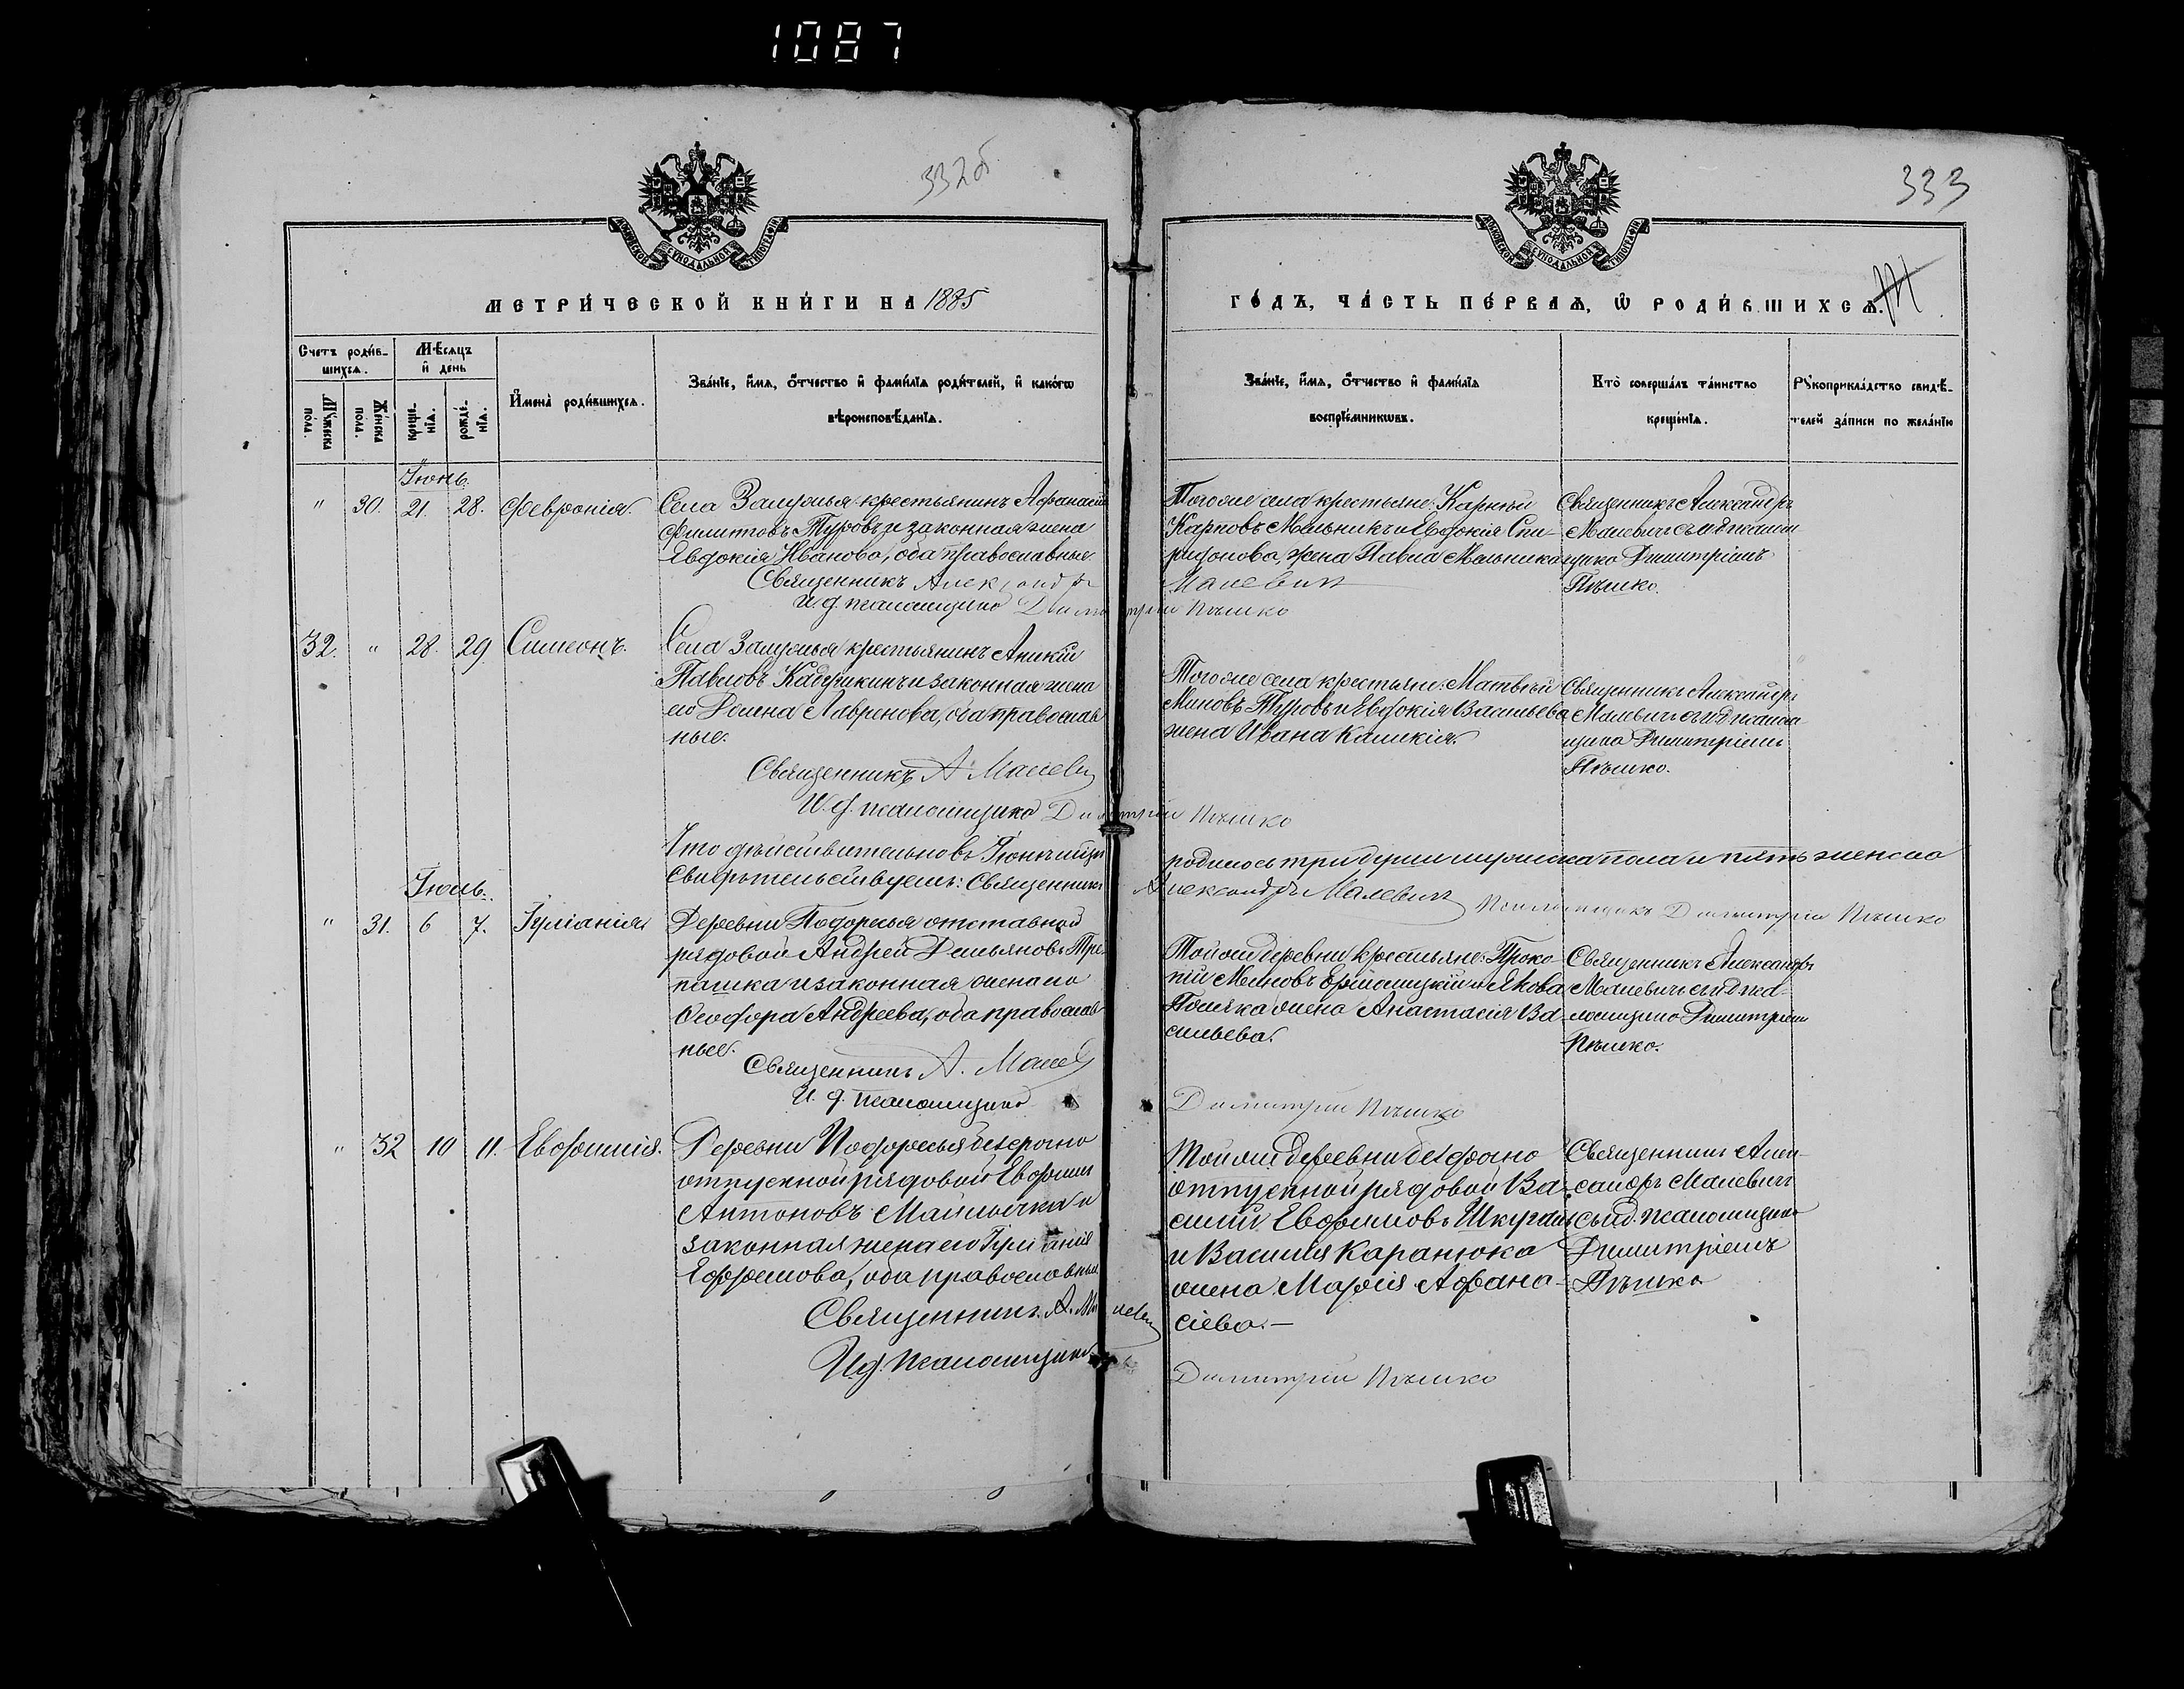 1087
332об
333
МОСКОВСКОЙ СѴНОДАЛЬНОЙ ТИПОГРАФІИ
МОСКОВСКОЙ СѴНОДАЛЬНОЙ ТИПОГРАФІИ
МЕТРИ́ЧЕСКОЙ КНИ́ГИ НА 1885
ГО́ДЪ, ЧА́СТЬ ПЕ́РВАѦ, Ѡ҆ РОДИ́ВШИХСѦ.
Счетъ роди́в-
шихсѧ.
Мѣ́сѧцъ
и҆ день
Му́жеска
пола.
Же́нска
пола.
креще́-
нїѧ.
рожде́-
нїѧ.
И҆мена̀ роди́вшихсѧ.
Зва́нїе, и҆́мѧ, ѻ҆́тчество и҆ фами́лїѧ роди́телей, и҆ како́гѡ
вѣроисповѣ́данїѧ.
Зва́нїе, и҆́мѧ, ѻ҆́тчество и҆ фами́лїѧ
воспрїе́мникѡвъ.
Кто̀ соверша́лъ та́инство
креще́нїѧ.
Рꙋкоприкла́дство свидѣ́-
телей за́писи по жела́нїю
Іюнь.
" 30. 21. 28. Февронія.
Села Залужья крестьянинъ Афанасій
Филиповъ Туровъ и законная жена
Евдокія Иванова, оба православные.
Священникъ Александръ Малевич
И. д. псаломщика Димитрій Пѣшко
Того же села крестьяне: Карней
Карповъ Мельникъ и Евдокія Спи-
ридонова, жена Павла Мельника
Священникъ Александръ
Малевичъ съ и. д. псалом
щика Димитріемъ
Пѣшко.
32. " 28. 29. Симеонъ.
Села Залужья крестьянинъ Аникій
Павловъ Кадушкинъ и законная жена
его Домна Лавренова, оба православ
ные.
Священникъ А. Малевич
И. д. псаломщика Димитрій Пѣшко
Того же села крестьяне: Матвѣй
Миновъ Туровъ и Евдокія Васильева
жена Ивана
Священникъ Александръ
Малевичъ съ и д псалом
щика Димитріемъ
Пѣшко.
Что дѣйствительно въ Іюнѣ мѣсяцѣ родилось три души мужеска пола и пять женска
свидѣтельствуемъ: Священникъ Александръ Малевич
Псаломщикъ Димитрій Пѣшко
Іюль.
" 31. 6 7. Іуліанія
Деревни Подорѣсья отставной
рядовой Андрей Демьяновъ Тре-
пашка и законная жена его
Феодора Андреева, оба православ
ные.
Священникъ А. Малев
И. д. псаломщика Димитрій Пѣшко
Той же деревни крестьяне: Проко
пій и Якова
жена Анастасія Ва
сильева.
Священникъ Александръ
Малевичъ съ и д пса-
ломщика Димитріем
Пѣшко.
" 32 10 11. Евфимія.
Деревни Подорѣсья безсрочно
отпускной рядовой Евфимій
Антоновъ и
законная жена его Іуліанія
Ефремова, оба православныя
Священникъ А. Малевич
И. д. псаломщика Димитрій Пѣшко
Той же деревни безсрочно
отпускной рядовой Ва-
силій Евфимовъ
и Василія Каранюка
жена Марія Афана-
сіева.—
Священникъ Алек-
сандръ Малевичъ
съ и. д. псаломщика
Димитріемъ
Пѣшко